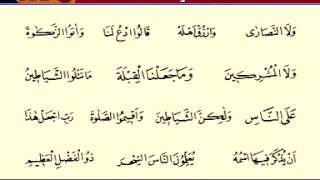 وَلَا النَّصَارٰى وَارْزُقْ اَهْلَهٗ قَالُوا ادْعُ لَنَا وَاٰتُوا الزَّكٰوةَ
وَلَا الْمُشْرِكِيْنَ وَمَا جَعَلْنَا الْقِبْلَةَ مَا تَتْلُوا الشَّيَاطِيْنُ
عَلَى النَّاسِ وَلٰكِنَّ الشَّيَاطِيْنَ وَاَقِيْمُوا الصَّلٰوةَ رَبِّ اجْعَلْ هٰذَا
اَنْ يُّذْكَرَ فِيْهَا اسْمُهٗ يُعَلِّمُوْنَ النَّاسَ السِّحْرَ ذُو الْفَضْلِ الْعَظِيْمِ